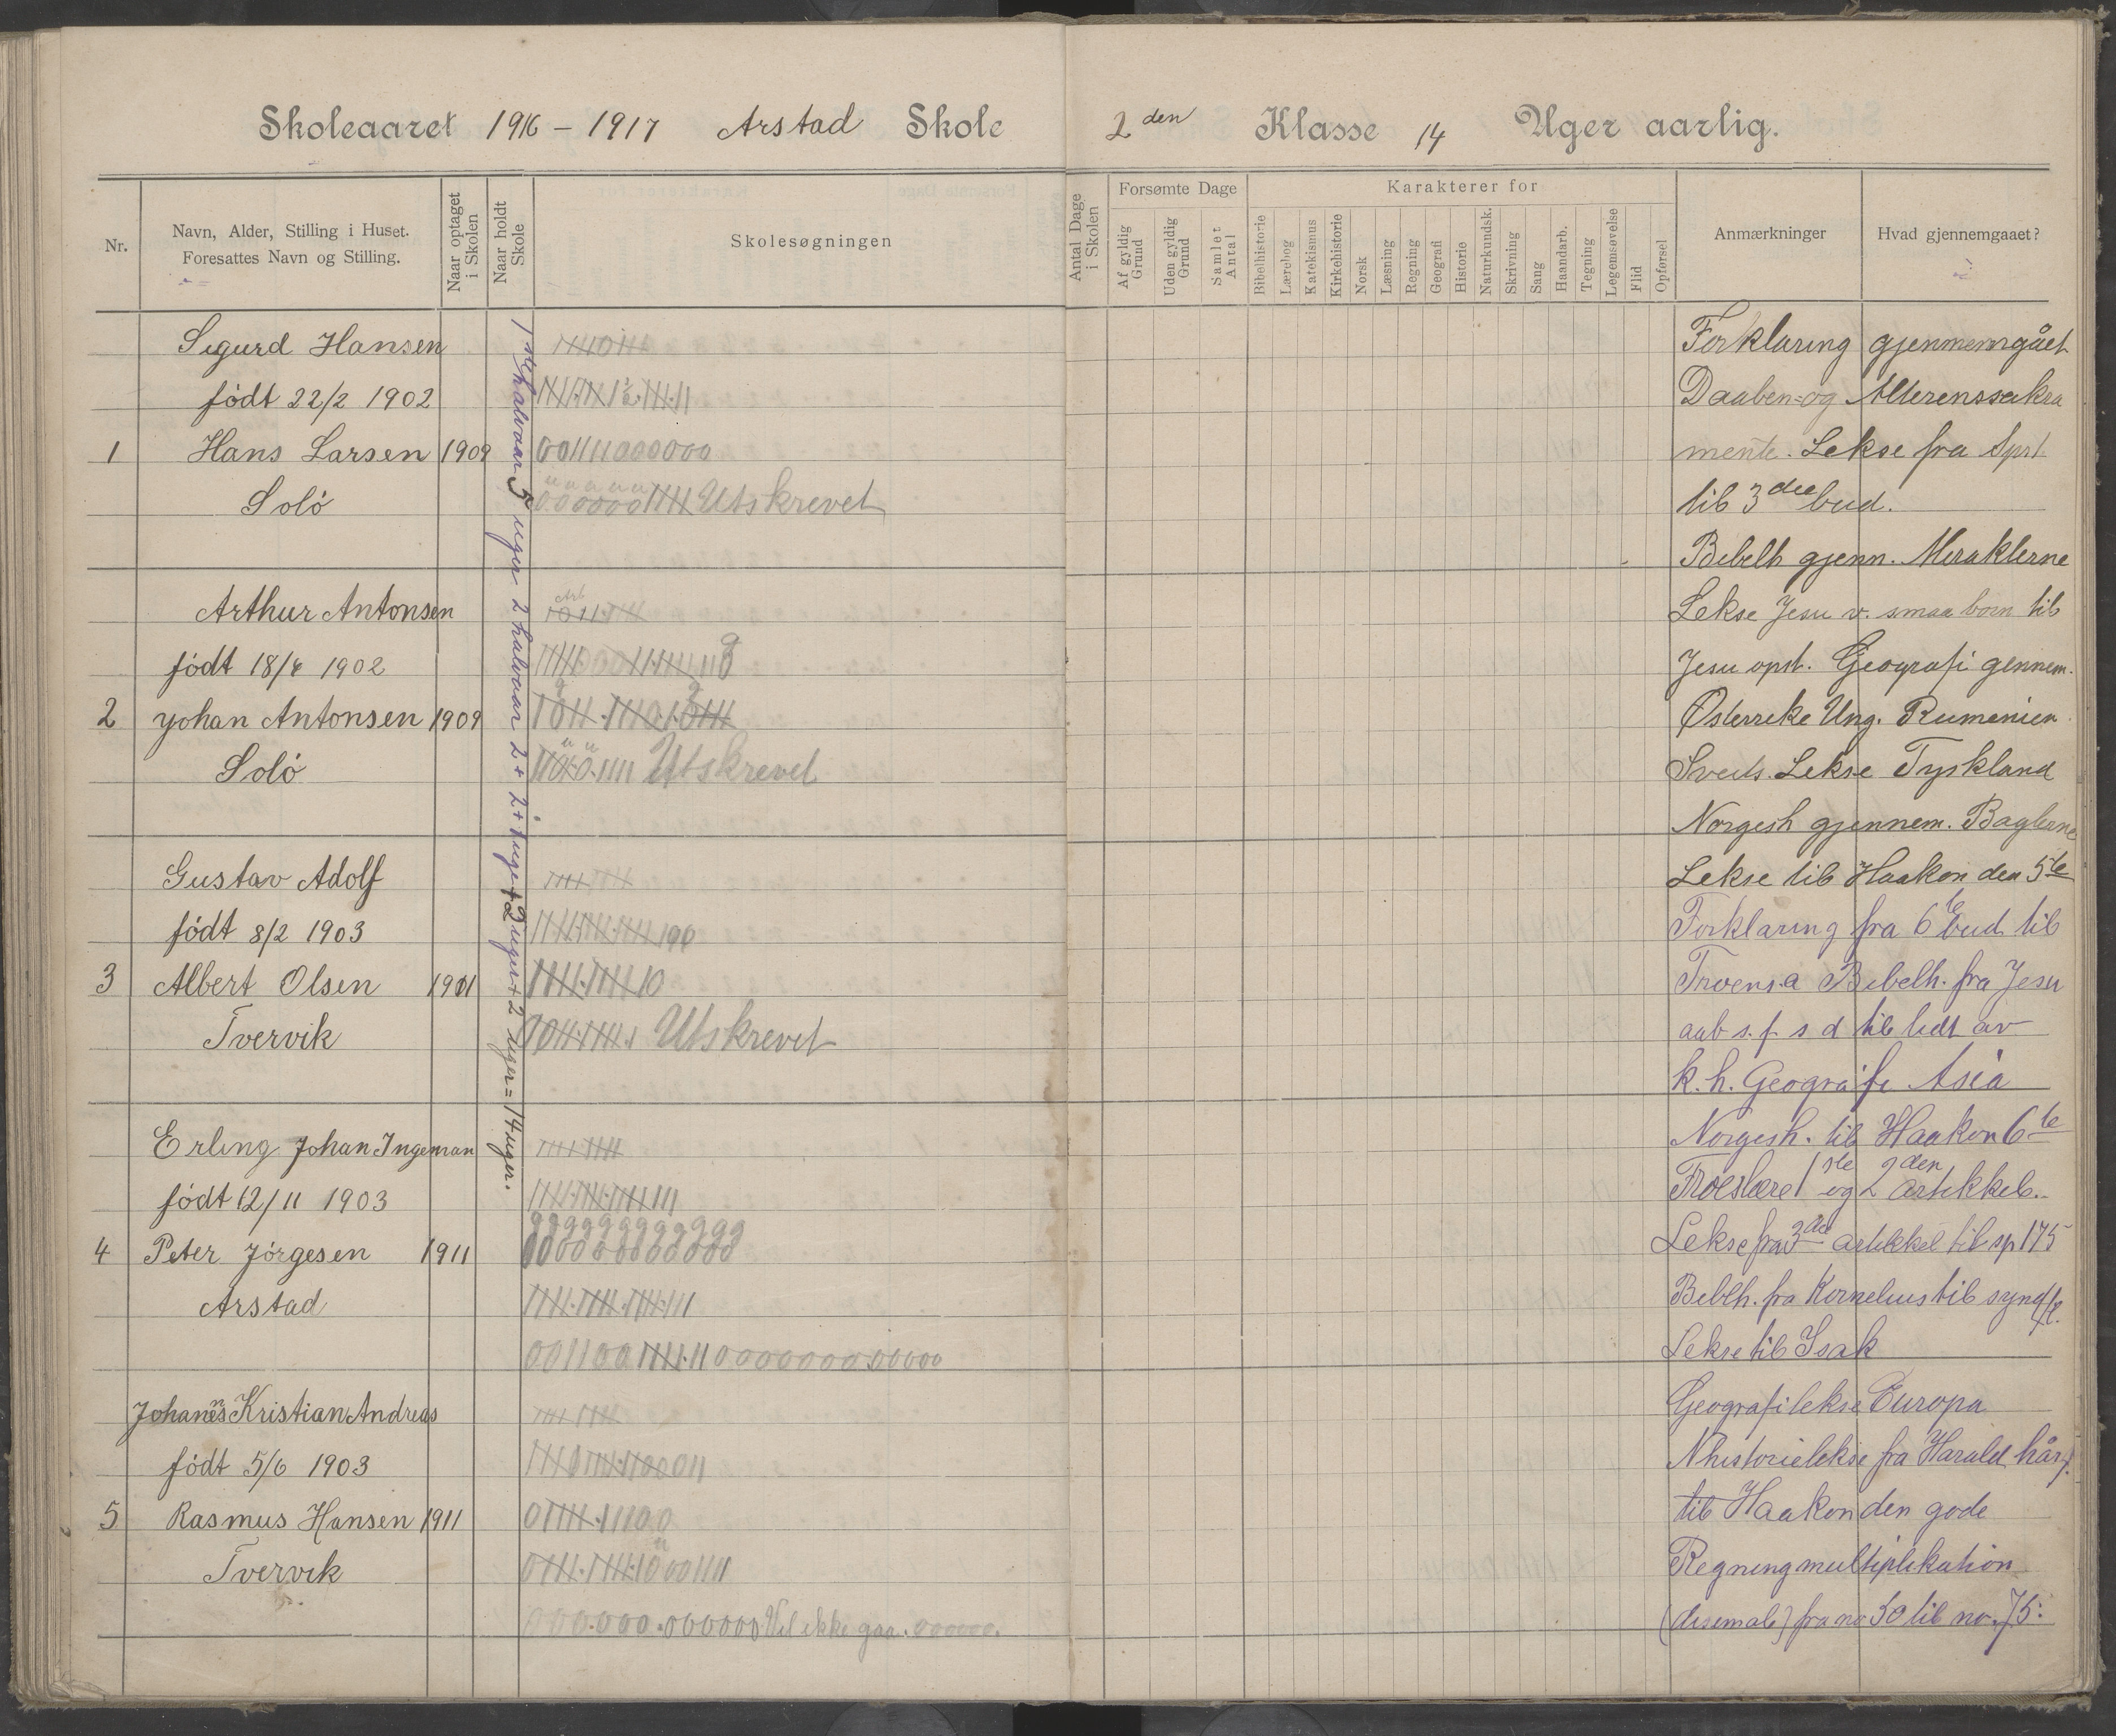 Skoleaaret 1916 - 1917 Arstad Skole
2den Klasse 14 Uger aarlig.
Nr.
Navn, Alder, Stilling i Huset.
Foresattes Navn og Stilling.
Naar optaget
i Skolen
Naar holdt
Skole
Skolesøgningen
Antal Dage
i Skolen
Forsømte Dage
Af gyldig
Grund
Uden gyldig
Grund
Samlet
Antal
Karakterer for
Bibelhistorie
Lærebog
Katekismus
Kirkehistorie
Norsk
Læsning
Regning
Geografi
Historie
Naturkundsk.
Skrivning
Sang
Haandarb.
Tegning
Legemsøvelse
Flid
Opførsel
Anmærkninger
Hvad gjennemgaaet?
1ste halvaar 5 uger 2 halvaar 2 + 2 + 1 uge + 2 uger + 2 uger = 14 uger.
Sigurd Hansen
født 22/2 1902
1 Hans Larsen 1909
Solö
Utskrevet
Arthur Antonsen
født 18/4 1902
2 Johan Antonsen 1909
Solö
Utskrevet
Gustav Adolf
født 8/2 1903
3 Albert Olsen 1901
Tvervik
Utskrevet
Erling Johan Ingeman
født 12/11 1903
4 Peter Jörgesen 1911
Arstad
Johannes Kristian Andreas
født 5/6 1903
5 Rasmus Hansen 1911
Tvervik
Vil ikke gaa.
Forklaring gjennemgået
Daaben= og Alterenssakra
mente. Lekse fra Sprl
til 3die bud.
Bibelh gjenn. Miraklerne
Lekse Jesu v. smaa born til
Jesu opst. Geografi gennem.
Østerrike Ung. Rumenien
Sveits. Lekse Tyskland
Norgesh gjennem. Baglerne
Lekse til Haakon den 5te
Forklaring fra 6te bud til
Troens.a Bibelh. fra Jesu
aab s. f. s d til lidt av
k. h. Geografi Asia
Norgesh. til Haakon 6te
Troeslære 1ste og 2den artikkel.
Lekse fra 3die artikkel til sp 175
Biblh. fra Kornelius til syndfl.
Lekse til Isak
Geografilekse Europa
Nhistorielekse fra Harald hårf.
til Haakon den gode
Regning multiplikation
(disemale) fra no 50 til no. 75.